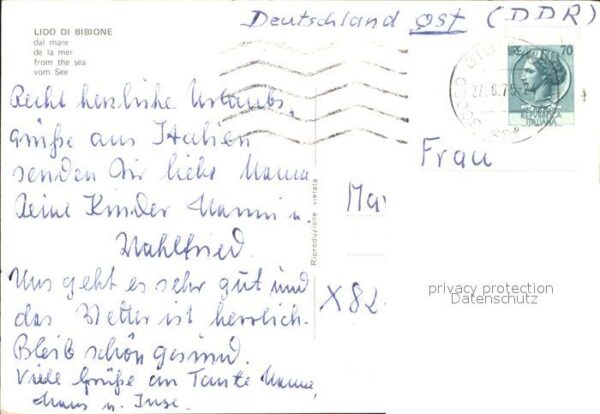 Deutschland Ost (DDR)
LIDO DI BIBIONE
dal mare
de la mer
from the sea
vom See
LIRE 70
REPVBBLICA
ITALIANA
Recht herzliche Urlaubs-
grüße aus Italien
senden Dir liebe Mama
Deine Kinder Hanni u.
Wahlfried.
Uns geht es sehr gut und
das Wetter ist herrlich.
Bleib schön gesund.
Viele Grüße an Tante
Hans u. Inge.
Riproduzione vietata
Frau
Ma
X82
privacy protection
Datenschutz